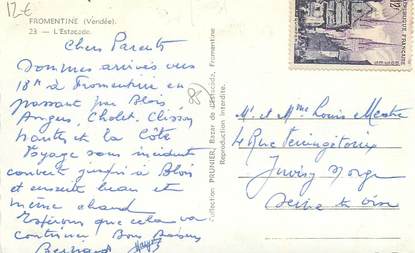 12€
FROMENTINE (Vendée).
23 - L'Estacade.
Chers Parents
Sommes arrivés vers
18h à Fromentine en
passant par Blois,
Angers, Cholet, Clisson
Nantes et la Côte
Voyage sans incidents
couvert jusqu'à Blois
et ensuite beau et
même chaud
Espérons que cela va
continuer Bons Baisers
Bernard
Collection PRUNIER, Bazar de l'Estacade, Fromentine
Reproduction interdite.
POSTES
FRANÇAISE
Mr et Mme Louis
4 Rue Vercingétorix
Juvisy s/Orge
Seine et Oise